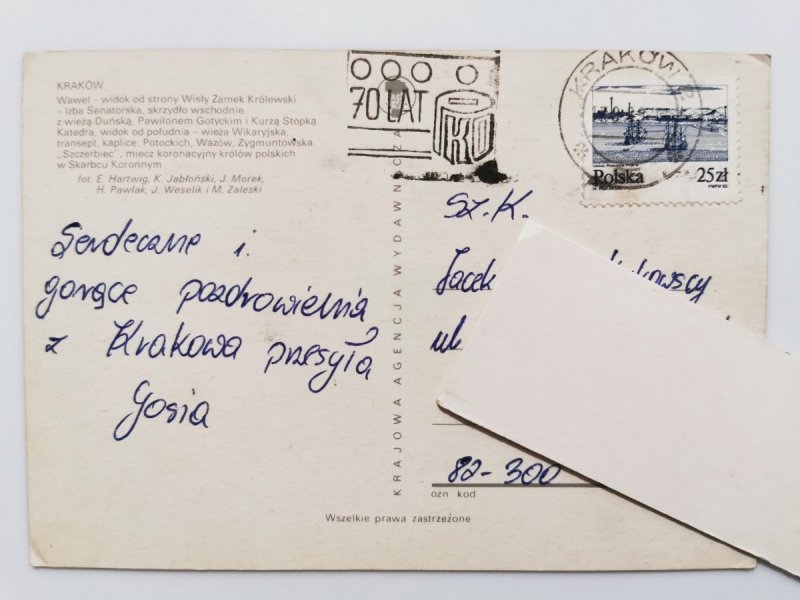 KRAKÓW
Wawel – widok od strony Wisły Zamek Królewski
– Izba Senatorska, skrzydło wschodnie
z wieżą Duńską, Pawilonem Gotyckim i Kurzą Stopką,
Katedra, widok od południa – wieża Wikaryjska,
transept, kaplice: Potockich, Wazów, Zygmuntowska
„Szczerbiec”, miecz koronacyjny królów polskich
w Skarbcu Koronnym
fot. E. Hartwig, K. Jabłoński, J. Morek,
H. Pawlak, J. Weselik i M. Zaleski
Serdeczne i
gorące pozdrowielnia
z Krakowa przesyła
Gosia
KRAJOWA AGENCJA WYDAWNICZA
70 LAT
PKO
KRAKÓW
Polska 25zł
Sz. K.
Jacek
ul
82-300
ozn. kod
Wszelkie prawa zastrzeżone